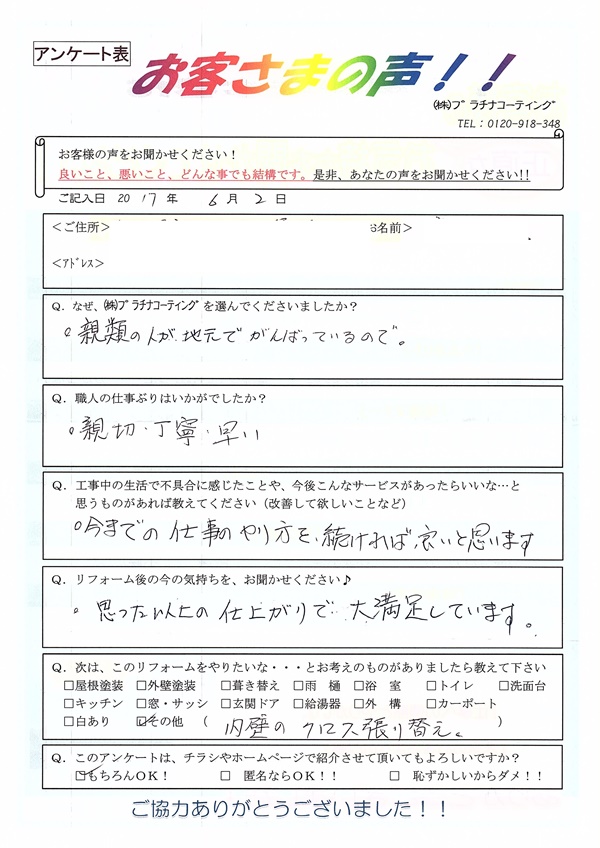 アンケート表
お客さまの声！！
㈱プラチナコーティング
TEL：0120-918-348
お客様の声をお聞かせください！
良いこと、悪いこと、どんな事でも結構です。是非、あなたの声をお聞かせください!!
ご記入日 2017年 6月 2日
＜ご住所＞ 名前＞
＜ｱﾄﾞﾚｽ＞
Q．なぜ、㈱プラチナコーティングを選んでくださいましたか？
。親類の人が、地元でがんばっているので。
Q．職人の仕事ぶりはいかがでしたか？
。親切・丁寧・早い
Q．工事中の生活で不具合に感じたことや、今後こんなサービスがあったらいいな…と
思うものがあれば教えてください（改善して欲しいことなど）
。今までの仕事のやり方を、続ければ良いと思います
Q．リフォーム後の今の気持ちを、お聞かせください♪
。思った以上の仕上がりで、大満足しています。
Q．次は、このリフォームをやりたいな・・・とお考えのものがありましたら教えて下さい
□屋根塗装 □外壁塗装 □葺き替え □雨 樋 □浴 室 □トイレ □洗面台
□キッチン □窓・サッシ □玄関ドア □給湯器 □外 構 □カーポート
□白あり ☑その他 （ 内壁のクロス張り替え。 ）
Q．このアンケートは、チラシやホームページで紹介させて頂いてもよろしいですか？
☑もちろんOK！ □ 匿名ならOK！！ □ 恥ずかしいからダメ！！
ご協力ありがとうございました！！